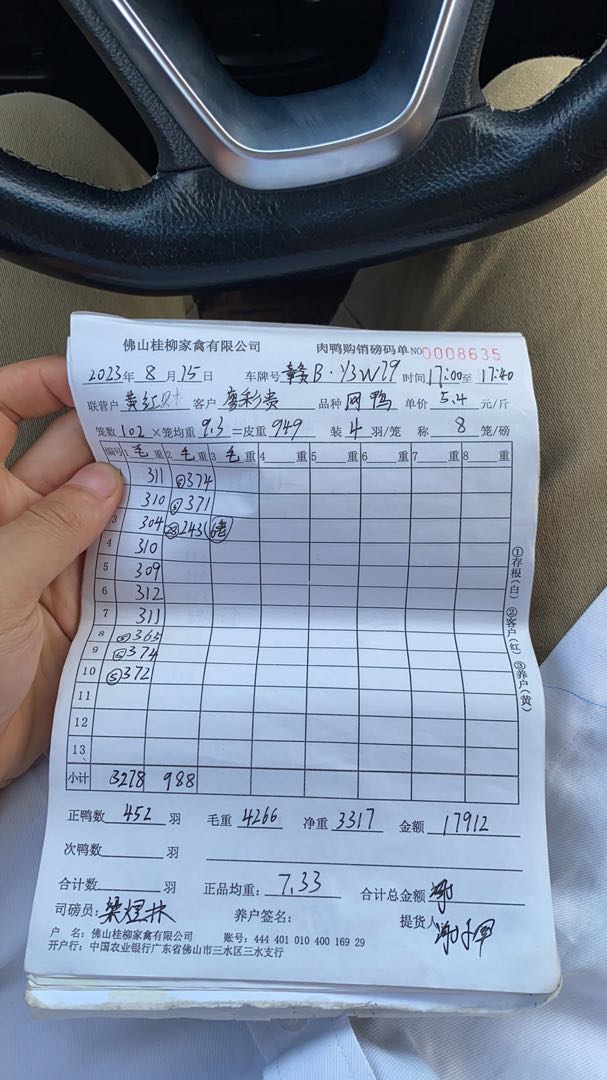 佛山桂柳家禽有限公司 肉鸭购销磅码单 NO 0008635
2023年 8 月 15 日 车牌号 赣B·Y3W79 时间 17:00 至 17:40
联营户 黄红 客户 廖彩贵 品种 网鸭 单价 5.4 元/斤
笼数 102 ×笼均重 9.3 =皮重 949 装 4 羽/笼 称 8 笼/磅
编号 1 毛 重 2 毛 重 3 毛 重 4 重 5 重 6 重 7 重 8 重
311 ⑤374
310 ⑤371
3 304 243
4 310
5 309
6 312
7 311
8 ⑤365
9 ⑤374
10 ⑤372
11
12
13
小计 3278 988
①存根(白) ②客户(红) ③养户(黄)
正鸭数 452 羽 毛重 4266 净重 3317 金额 17912
次鸭数 羽
合计数 羽 正品均重: 7.33 合计总金额
司磅员: 梁煜林 养户签名: 提货人
户 名: 佛山桂柳家禽有限公司 账号: 444 401 010 400 169 29
开户行: 中国农业银行广东省佛山市三水区三水支行